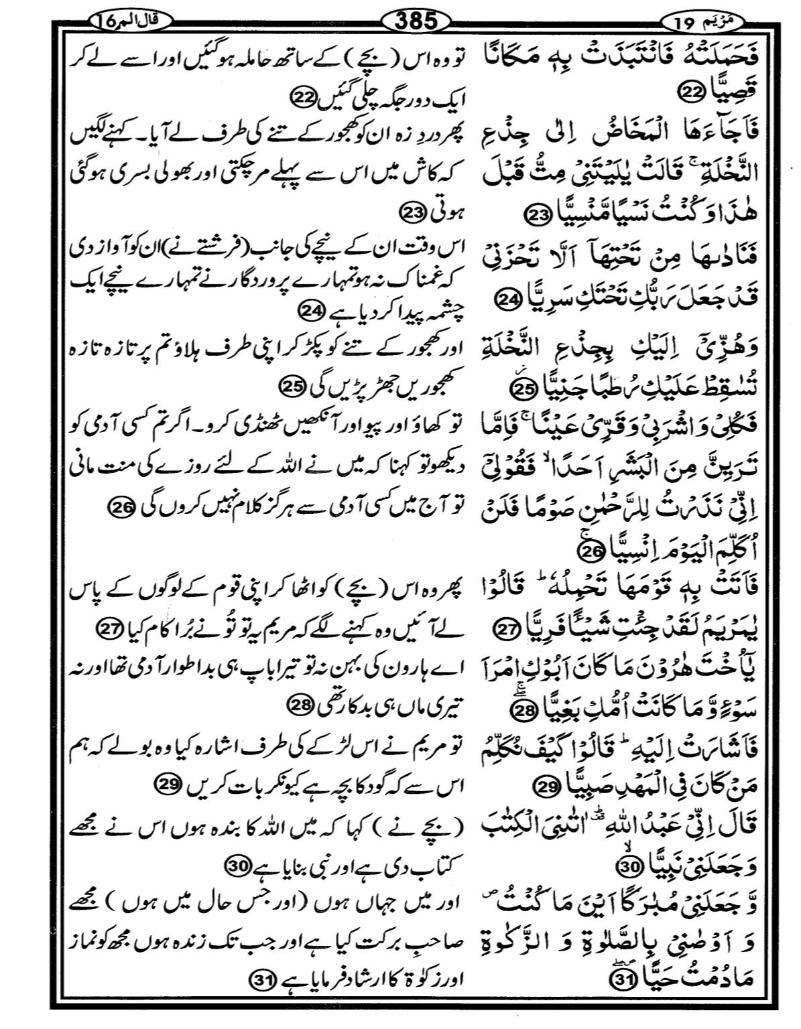 مَرْيَم 19
385
قال الم 16
فَحَمَلَتْهُ فَانْتَبَذَتْ بِهٖ مَكَانًا
قَصِيًّا 22
تو وہ اس (بچے) کے ساتھ حاملہ ہوگئیں اور اسے لے کر
ایک دور جگہ چلی گئیں 22
فَاَجَآءَهَا الْمَخَاضُ اِلٰى جِذْعِ
النَّخْلَةِ ۚ قَالَتْ يٰلَيْتَنِىْ مِتُّ قَبْلَ
هٰذَا وَكُنْتُ نَسْيًا مَّنْسِيًّا 23
پھر دردِ زہ ان کو کھجور کے تنے کی طرف لے آیا۔ کہنے لگیں
کہ کاش میں اس سے پہلے مرچکتی اور بھولی بسری ہوگئی
ہوتی 23
فَنَادٰىهَا مِنْ تَحْتِهَاۤ اَلَّا تَحْزَنِىْ
قَدْ جَعَلَ رَبُّكِ تَحْتَكِ سَرِيًّا 24
اس وقت ان کے نیچے کی جانب (فرشتے نے) ان کو آواز دی
کہ غمناک نہ ہو تمہارے پروردگار نے تمہارے نیچے ایک
چشمہ پیدا کردیا ہے 24
وَهُزِّىْۤ اِلَيْكِ بِجِذْعِ النَّخْلَةِ
تُسٰقِطْ عَلَيْكِ رُطَبًا جَنِيًّا 25
اور کھجور کے تنے کو پکڑ کر اپنی طرف ہلاؤ تم پر تازہ تازہ
کھجوریں جھڑ پڑیں گی 25
فَكُلِىْ وَاشْرَبِىْ وَقَرِّىْ عَيْنًا ۚ فَاِمَّا
تَرَيِنَّ مِنَ الْبَشَرِ اَحَدًا ۙ فَقُوْلِىْۤ
اِنِّىْ نَذَرْتُ لِلرَّحْمٰنِ صَوْمًا فَلَنْ
اُكَلِّمَ الْيَوْمَ اِنْسِيًّا ۚ 26
تو کھاؤ اور پیو اور آنکھیں ٹھنڈی کرو۔ اگر تم کسی آدمی کو
دیکھو تو کہنا کہ میں نے اللہ کے لئے روزے کی منت مانی
تو آج میں کسی آدمی سے ہرگز کلام نہیں کروں گی 26
فَاَتَتْ بِهٖ قَوْمَهَا تَحْمِلُهٗ ؕ قَالُوْا
يٰمَرْيَمُ لَقَدْ جِئْتِ شَيْـًٔا فَرِيًّا 27
پھر وہ اس (بچے) کو اٹھا کر اپنی قوم کے لوگوں کے پاس
لے آئیں وہ کہنے لگے کہ مریم یہ تو تُو نے بُرا کام کیا 27
يٰۤاُخْتَ هٰرُوْنَ مَا كَانَ اَبُوْكِ امْرَاَ
سَوْءٍ وَّمَا كَانَتْ اُمُّكِ بَغِيًّا ۖۚ 28
اے ہارون کی بہن نہ تو تیرا باپ ہی بداطوار آدمی تھا اور نہ
تیری ماں ہی بدکار تھی 28
فَاَشَارَتْ اِلَيْهِ ؕ قَالُوْا كَيْفَ نُكَلِّمُ
مَنْ كَانَ فِى الْمَهْدِ صَبِيًّا 29
تو مریم نے اس لڑکے کی طرف اشارہ کیا وہ بولے کہ ہم
اس سے کہ گود کا بچہ ہے کیونکر بات کریں 29
قَالَ اِنِّىْ عَبْدُ اللّٰهِ ؕ اٰتٰنِىَ الْكِتٰبَ
وَجَعَلَنِىْ نَبِيًّا ۙ 30
(بچے نے) کہا کہ میں اللہ کا بندہ ہوں اس نے مجھے
کتاب دی ہے اور نبی بنایا ہے 30
وَّجَعَلَنِىْ مُبٰرَكًا اَيْنَ مَا كُنْتُ ۖ
وَ اَوْصٰنِىْ بِالصَّلٰوةِ وَ الزَّكٰوةِ
مَا دُمْتُ حَيًّا ۖ 31
اور میں جہاں ہوں (اور جس حال میں ہوں) مجھے
صاحبِ برکت کیا ہے اور جب تک زندہ ہوں مجھ کو نماز
اور زکوٰۃ کا ارشاد فرمایا ہے 31